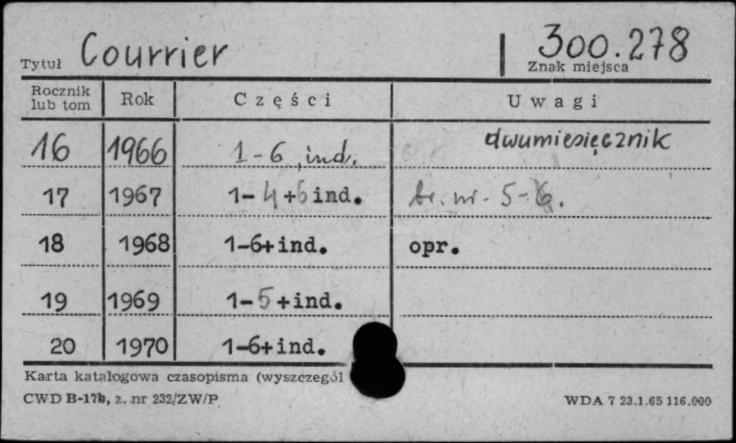 Tytuł Courrier 300.278
Znak miejsca
Rocznik lub tom Rok Części Uwagi
16 1966 1-6, ind. dwumiesięcznik
17 1967 1-4+6 ind. br. nr. 5-6.
18 1968 1-6+ind. opr.
19 1969 1-5+ind.
20 1970 1-6+ind.
Karta katalogowa czasopisma (wyszczegól
CWD B-17b, z. nr 232/ZW/P WDA 7 23.1.65 116.000